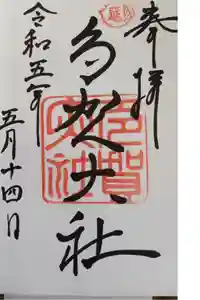 奉拝
多賀大社
多賀大社
令和五年
五月十四日